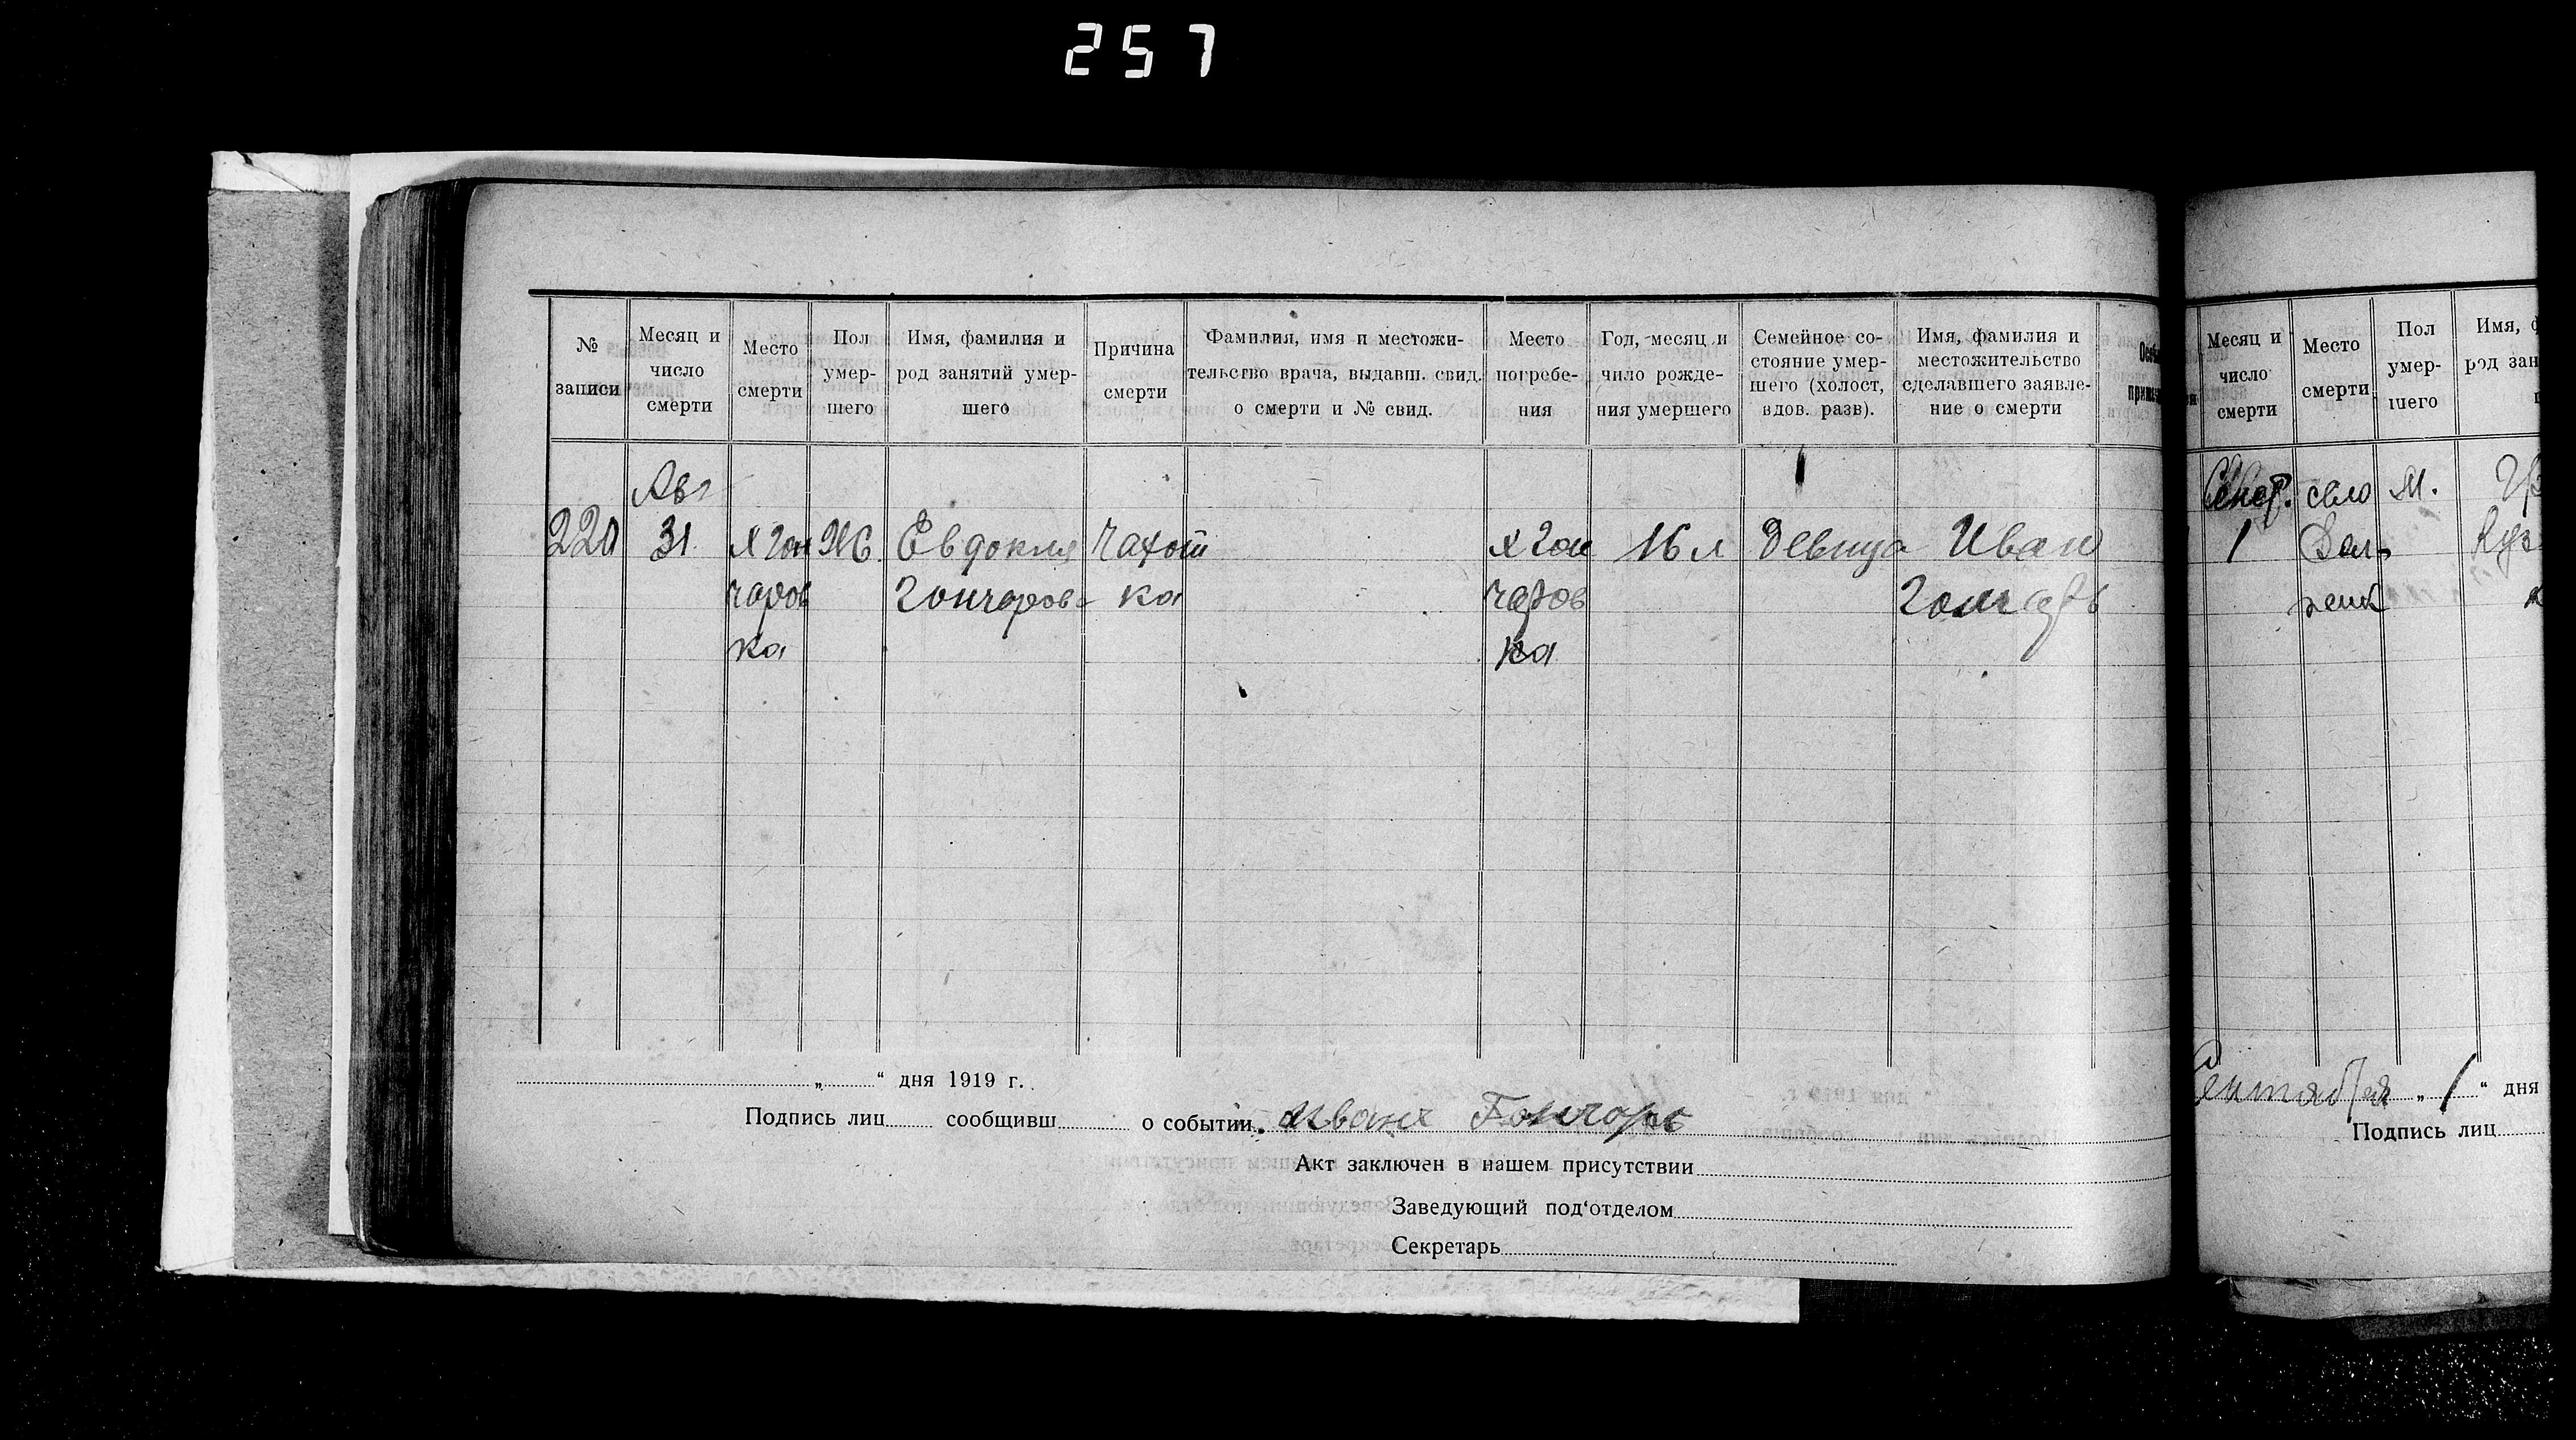 257
№ записи
Месяц и число смерти
Место смерти
Пол умер-шего
Имя, фамилия и род занятий умер-шего
Причина смерти
Фамилия, имя и местожи-тельство врача, выдавш. свид. о смерти и № свид.
Место погребе-ния
Год, месяц и число рожде-ния умершего
Семейное со-стояние умер-шего (холост, вдов. разв).
Имя, фамилия и местожительство сделавшего заявле-ние о смерти
Авг
220 31 х Гон Ж. Евдокия Чахот х Гон 16 л Девица Иван
чаров Гончаров- ка чаров Гончарь
ка ка
„ “ дня 1919 г.
Подпись лиц сообщивш о событии. Иванъ Гончарь
Акт заключен в нашем присутствии
Заведующий под‘отделом
Секретарь
Месяц и число смерти
Место смерти
Пол умер-шего
Имя,
род зан
Сент. село М.
1
Сентября „ 1 “ дня
Подпись лиц